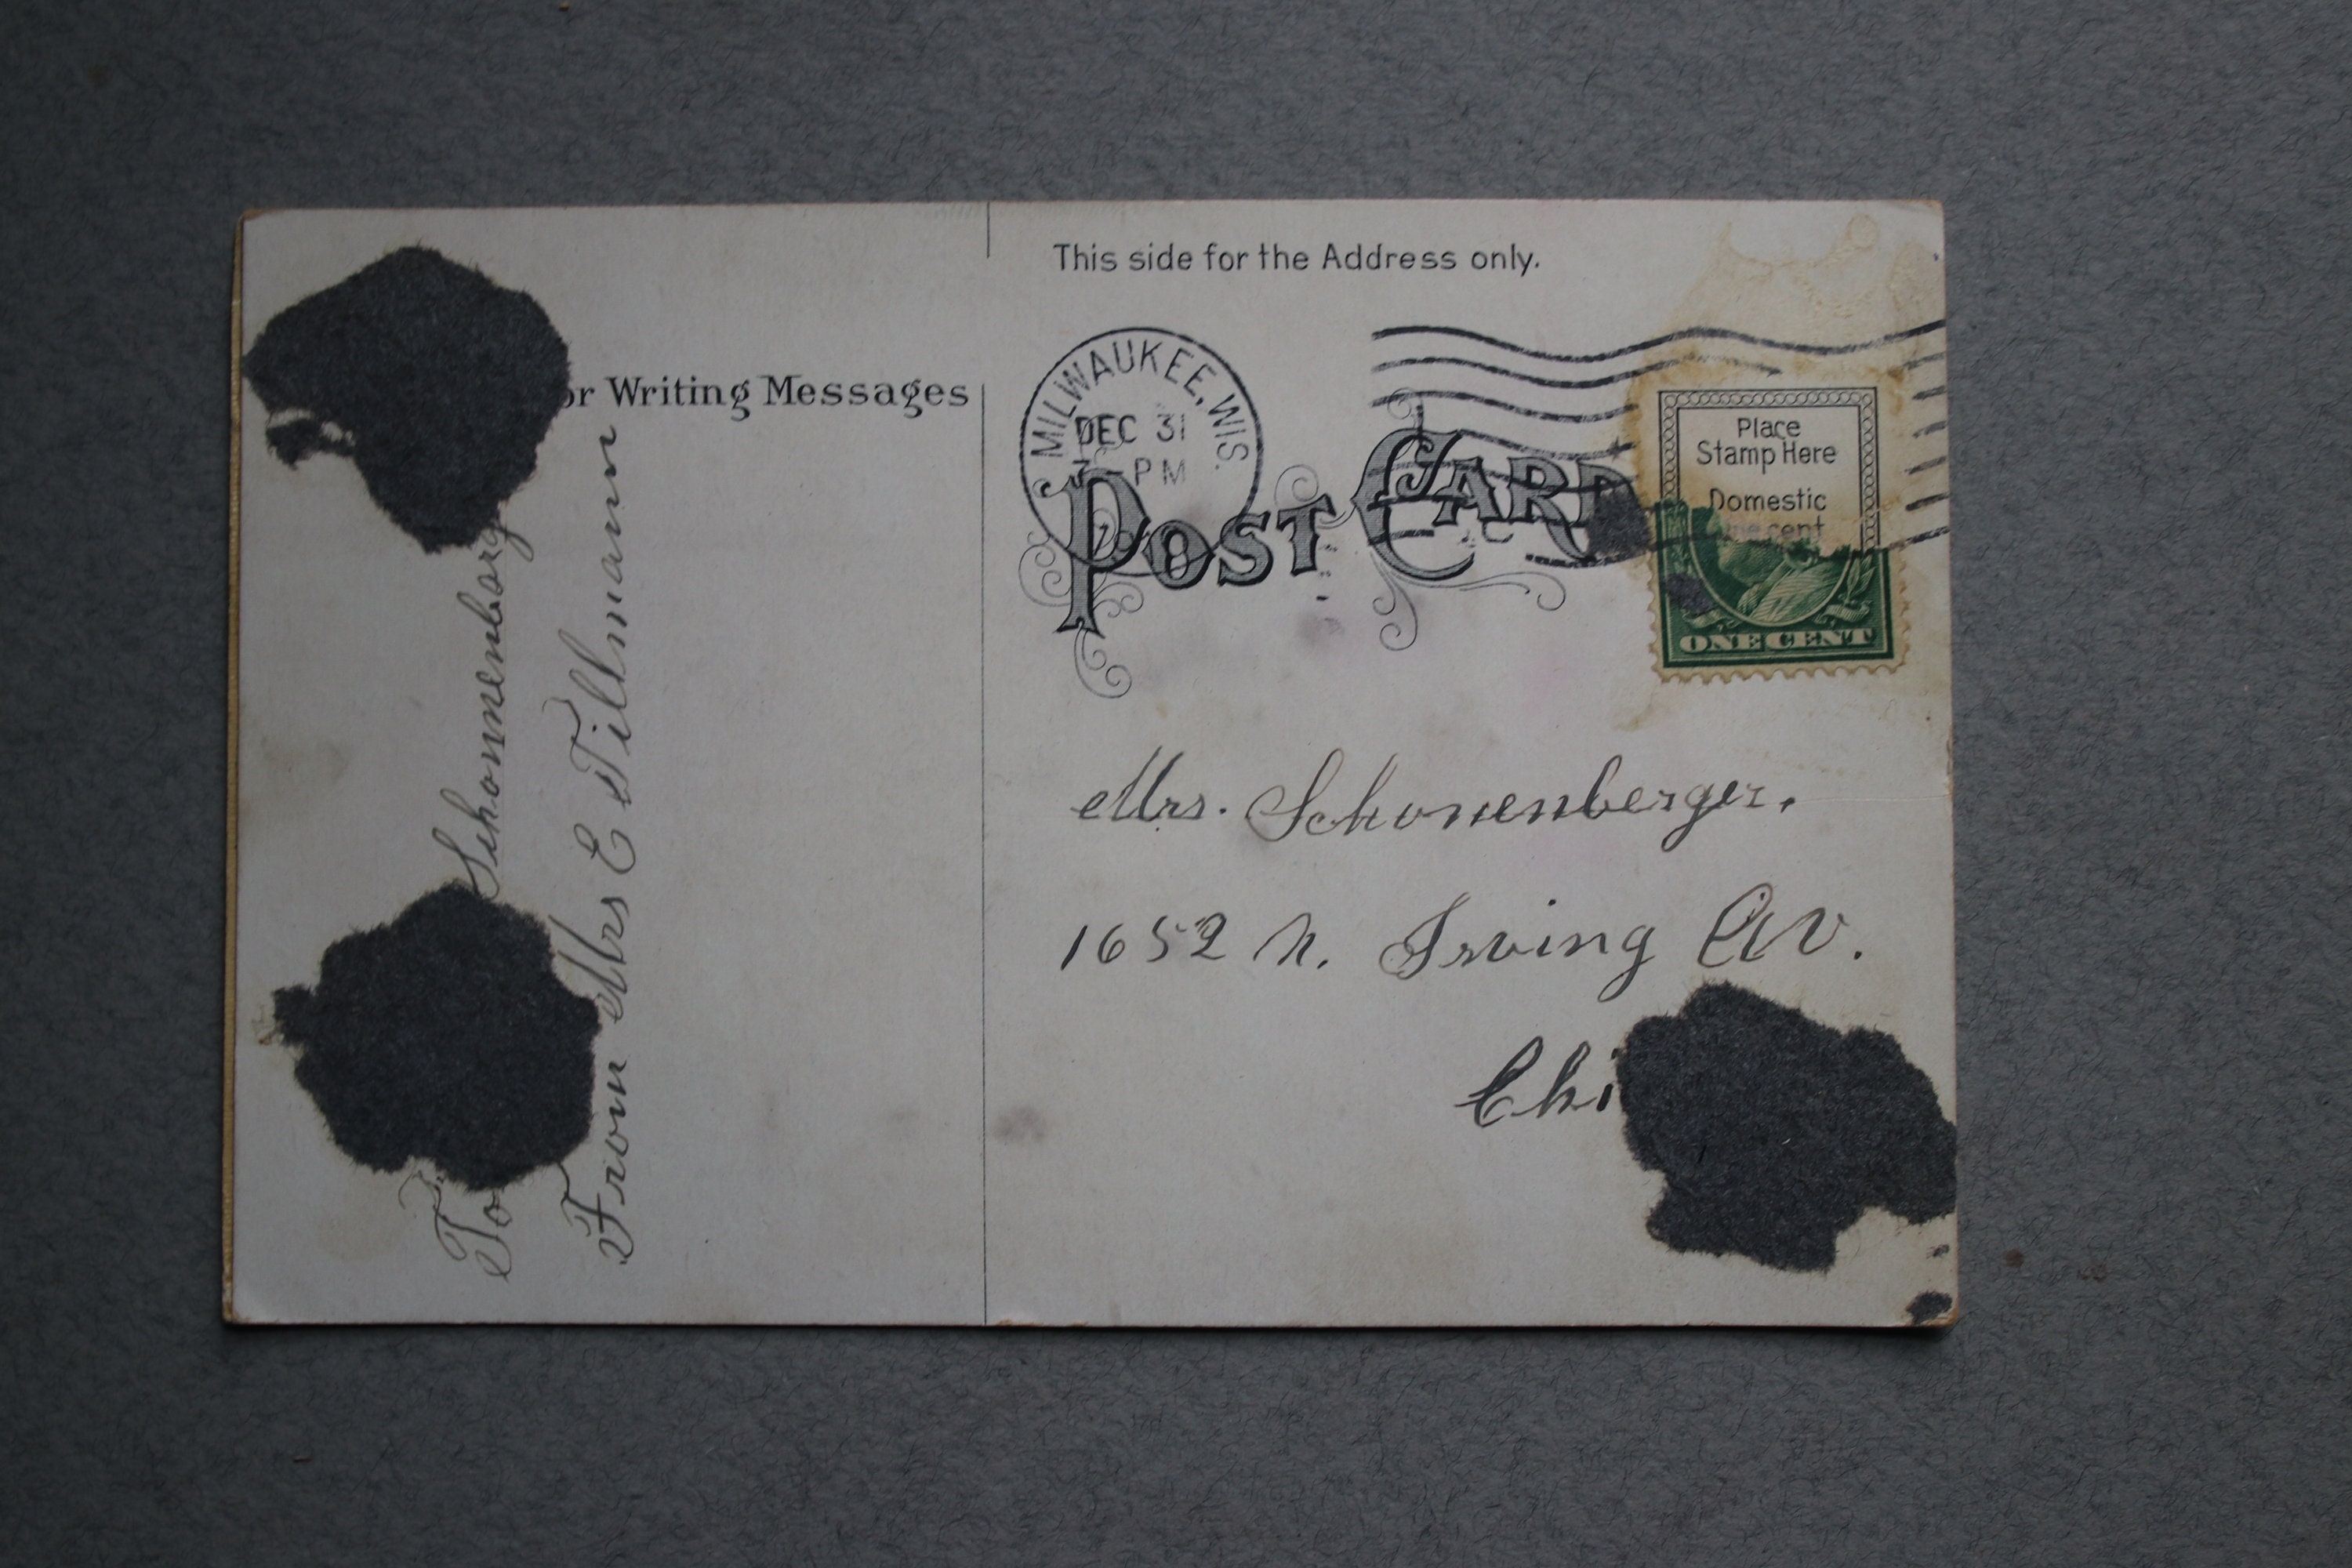 This side for the Address only.
or Writing Messages
MILWAUKEE, WIS.
DEC 31
PM
POST CARD
Place
Stamp Here
Domestic
cent
ONE CENT
To Schonnenberg
From Mrs E Tillmann
Mrs. Schonenberger.
1652 N. Irving Av.
Chi